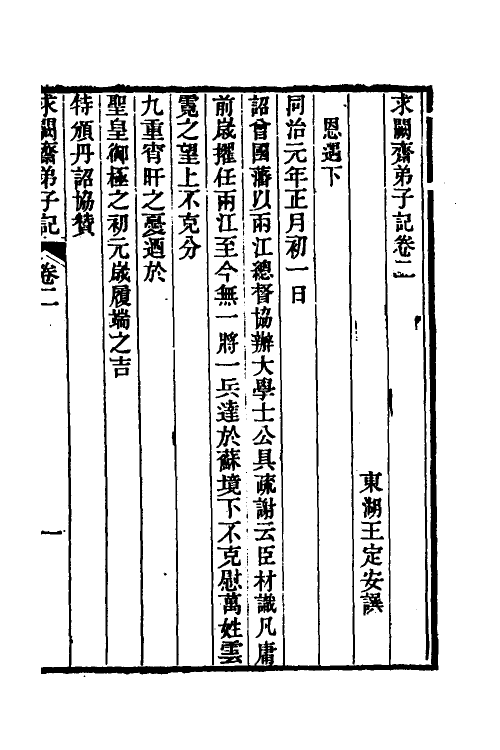 求闕齋弟子記卷二
東湖王定安譔
恩遇下
同治元年正月初一日
詔曾國藩以兩江總督協辦大學士公具疏謝云臣材識凡庸
前歲擢任兩江至今無一將一兵達於蘇境下不克慰萬姓雲
霓之望上不克分
九重宵旰之憂迺於
聖皇御極之初元歲履端之吉
特頒丹詔協贊
求闕齋弟子記 卷二 一